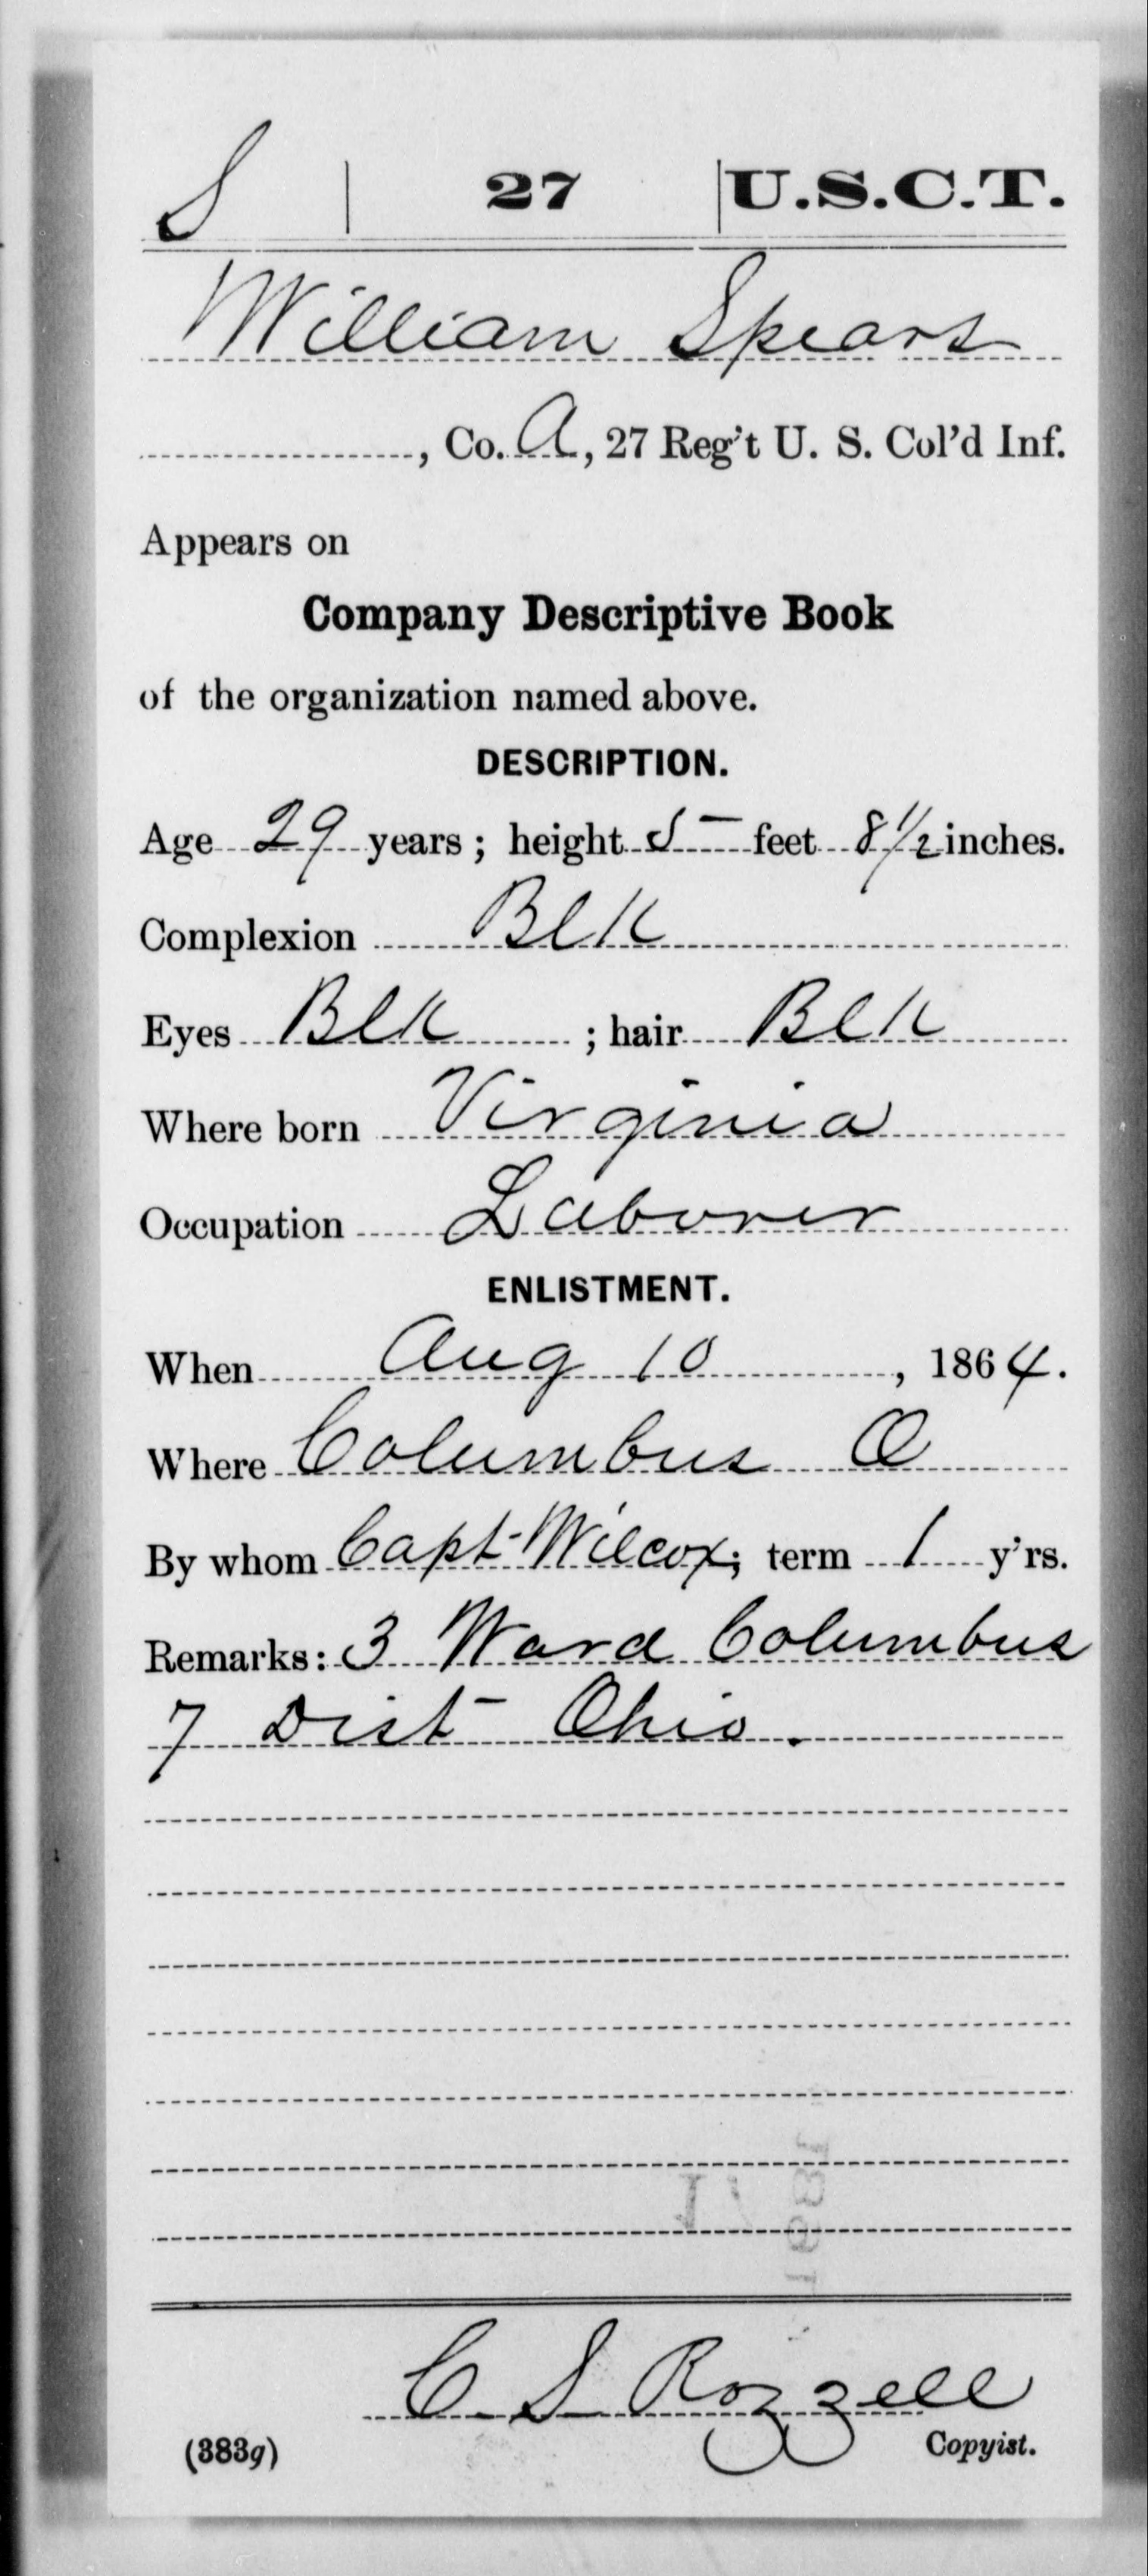 S | 27 | U.S.C.T.
William Spears
, Co. A, 27 Reg't U. S. Col'd Inf.
Appears on
Company Descriptive Book
of the organization named above.
DESCRIPTION.
Age 29 years; height 5 feet 8 1/2 inches.
Complexion Blk
Eyes Blk; hair Blk
Where born Virginia
Occupation Laborer
ENLISTMENT.
When Aug 10, 1864.
Where Columbus O
By whom Capt Wilcox; term 1 y'rs.
Remarks: 3 Ward Columbus
7 Dist Ohio.
C. S. Rozzell
(383g) Copyist.